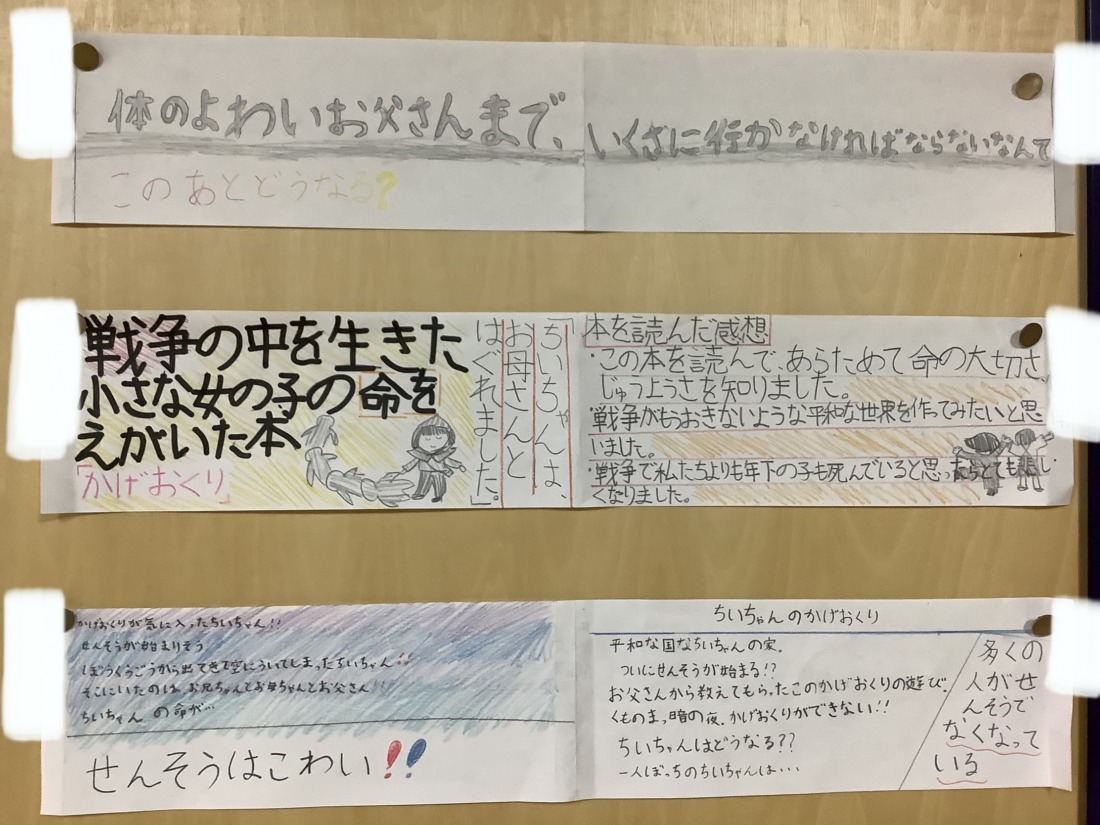 体のよわいお父さんまで、いくさに行かなければならないなんて
このあとどうなる?
戦争の中を生きた
小さな女の子の命を
えがいた本
「かげおくり」
「ちいちゃんは、
お母さんと
はぐれました。」
本を読んだ感想
・この本を読んで、あらためて命の大切さ、
じゅうようさを知りました。
・戦争がもうおきないような平和な世界を作ってみたいと思
いました。
・戦争で私たちよりも年下の子も死んでいると思ったらとても悲し
くなりました。
かげおくりが気に入ったちいちゃん!!
せんそうが始まりそう
ぼうくうごうから出てきて空にういてしまったちいちゃん!!
そこにいたのは、お兄ちゃんとお母ちゃんとお父さん!!
ちいちゃんの命が…
せんそうはこわい!!
ちいちゃんのかげおくり
平和な国なちいちゃんの家。
ついにせんそうが始まる!?
お父さんから教えてもらったこのかげおくりの遊び。
くものまっ暗の夜、かげおくりができない!!
ちいちゃんはどうなる??
一人ぼっちのちいちゃんは・・・
多くの
人がせ
んそうで
なくなって
いる